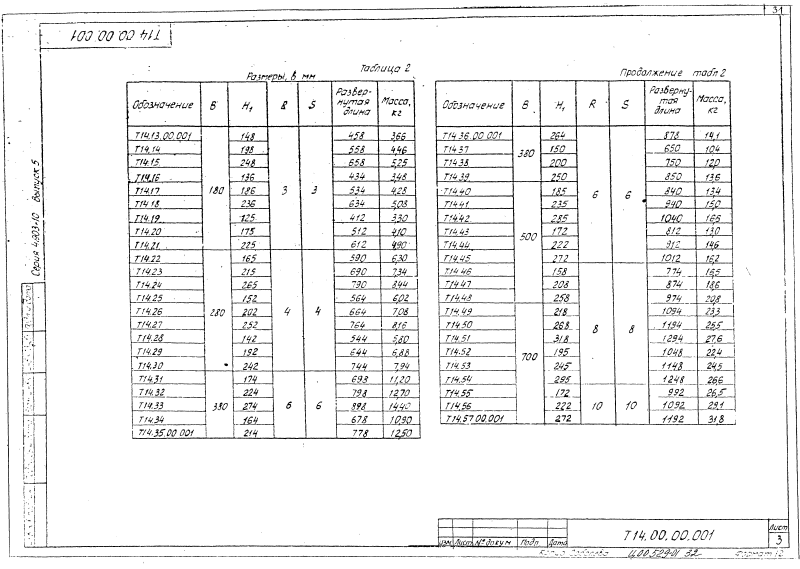 31
Т14 00 00.001
Серия 4.903-10 Выпуск 5
Таблица 2
Размеры, в мм
Обозначение В Н₁ R S Развернутая длина Масса, кг
Т14.13.00.001 180 148 3 3 458 3,66
Т14.14 198 558 4,46
Т14.15 248 658 5,25
Т14.16 136 434 3,48
Т14.17 186 534 4,28
Т14.18 236 634 5,08
Т14.19 125 412 3,30
Т14.20 175 512 4,10
Т14.21 225 612 4,90
Т14.22 280 165 4 4 590 6,30
Т14.23 215 690 7,34
Т14.24 265 790 8,44
Т14.25 152 564 6,02
Т14.26 202 664 7,08
Т14.27 252 764 8,16
Т14.28 142 544 5,80
Т14.29 192 644 6,88
Т14.30 242 744 7,94
Т14.31 380 174 6 6 698 11,20
Т14.32 224 798 12,70
Т14.33 274 898 14,40
Т14.34 164 678 10,90
Т14.35.00.001 214 778 12,50
Продолжение табл 2
Обозначение В Н₁ R S Развернутая длина Масса, кг
Т14.36.00.001 380 264 6 6 878 14,1
Т14.37 150 650 10,4
Т14.38 200 750 12,0
Т14.39 250 850 13,6
Т14.40 500 185 840 13,4
Т14.41 235 940 15,0
Т14.42 285 1040 16,6
Т14.43 172 812 13,0
Т14.44 222 912 14,6
Т14.45 272 1012 16,2
Т14.46 158 8 8 774 16,5
Т14.47 208 874 18,6
Т14.48 258 974 20,8
Т14.49 700 218 1094 23,3
Т14.50 268 1194 25,5
Т14.51 318 1294 27,6
Т14.52 195 1048 22,4
Т14.53 245 1148 24,5
Т14.54 295 1248 26,6
Т14.55 172 10 10 992 26,5
Т14.56 222 1092 29,1
Т14.57.00.001 272 1192 31,8
Изм Лист № докум Подп Дата
Т14.00.00.001
Лист
3
Ц.00.529-01 32
Формат 12